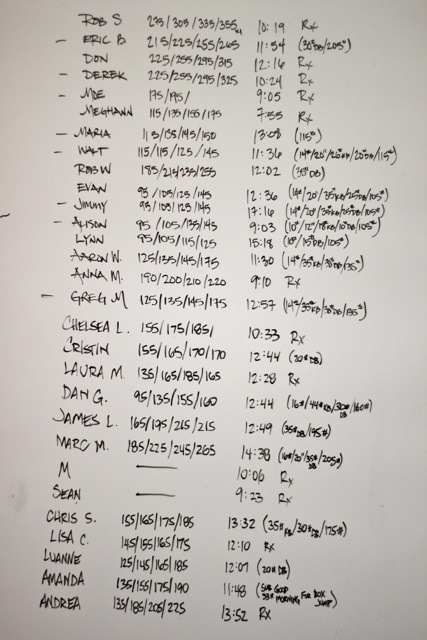 ROB S 275/305/335/355 10:19 Rx
- ERIC B. 215/225/255/265 11:54 (30#DB/205#)
DON 225/255/295/315 12:16 Rx
- DEREK 225/255/295/325 10:24 Rx
- MOE 175/195/ 9:05 Rx
MEGHANN 115/135/155/175 7:55 Rx
- MARIA 115/135/145/150 13:08 (115#)
- WALT 115/115/125/145 11:36 (14#/20"/26#KB/20#DB/115#)
ROB W 185/215/235/255 12:02 (35#DB)
EVAN 95/105/125/145 12:36 (14#/20"/35#KB/25#DB/105#)
- JIMMY 95/105/125/145 17:16 (14#/20"/35#KB/25#DB/105#)
- ALISON 95/105/135/145 9:03 (10#/12"/18#KB/10#DB/105#)
LYNN 95/105/115/125 15:18 (10#/15#DB/105#)
AARON W. 125/135/145/175 11:30 (14#/35#KB/30#DB/35#)
ANNA M. 190/200/210/220 9:10 Rx
- GREG M 125/135/145/175 12:57 (14#/35#KB/30#DB/135#)
CHELSEA L. 155/175/185/ 10:33 Rx
CRISTIN 155/165/170/170 12:44 (20#DB)
LAURA M. 135/165/185/165 12:28 Rx
DAN G. 95/135/155/160 12:44 (16#/44#KB/30#DB/160#)
JAMES L. 165/195/215/215 12:49 (35#DB/195#)
MARC M. 185/225/245/265 14:38 (16#/20"/35#DB/205#)
M — 10:06 Rx
SEAN — 9:23 Rx
CHRIS S. 155/165/175/185 13:32 (35#KB/30#DB/175#)
LISA C. 145/155/165/175 12:10 Rx
LUANNE 125/145/165/185 12:07 (20#DB)
AMANDA 135/155/175/190 11:48 (SUB GOOD MORNING FOR BOX JUMP)
ANDREA 135/185/205/225 13:52 RX